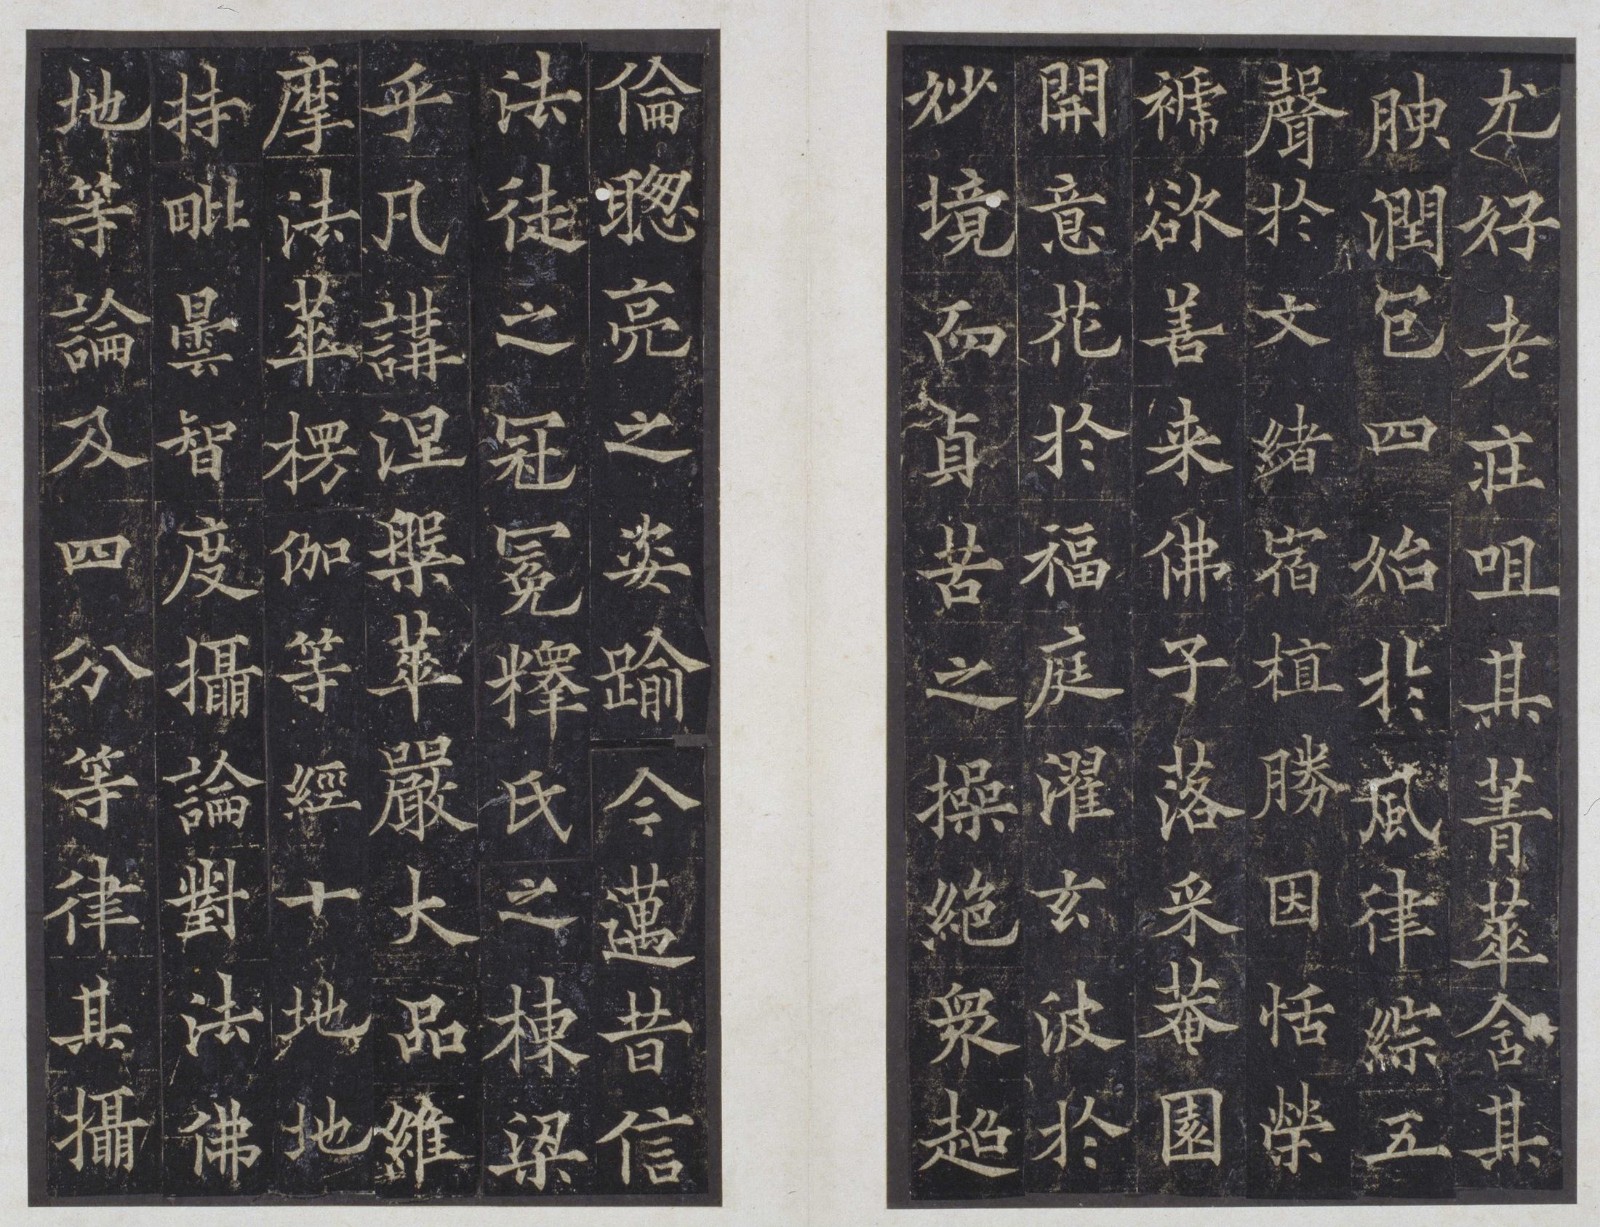 尤好老荘咀其菁華含其
腴潤包四始扵風律綜五
聲扵文緒宿植勝因恬榮
褫欲善来佛子落采菴園
開意花扵福庭濯玄波扵
妙境而貞苦之操絶衆超
倫聰亮之姿踰今邁昔信
法徒之冠冕釋氏之棟梁
乎凡講涅槃華嚴大品維
摩法華楞伽等經十地地
持毗曇智度攝論對法佛
地等論及四分等律其攝